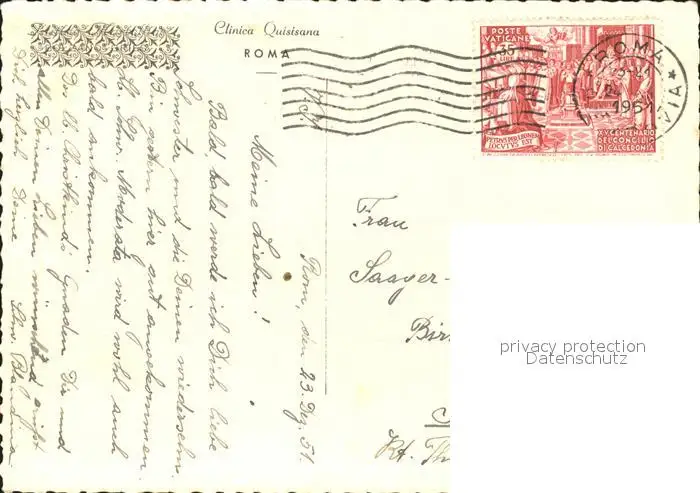 Clinica Quisisana
ROMA
POSTE VATICANE
35
PETRVS PER LEONEM
LOCVTVS EST
XV CENTENARIO
DEL CONCILIO
DI CALCEDONIA
ROMA
1951
VIA
Rom, den 23. Dez. 51.
Meine Lieben!
Bald, bald werde ich Dich liebe
Schwester und die Deinen wiedersehn.
Bin gestern hier gut angekommen.
wird wohl auch
bald ankommen.
Des lb. Christkinds Gnaden Dir und
allen Deinen Lieben wünschend grüßt
Dich herzlich Deine
Frau
Saager-
Bir
Kt. Th
privacy protection
Datenschutz